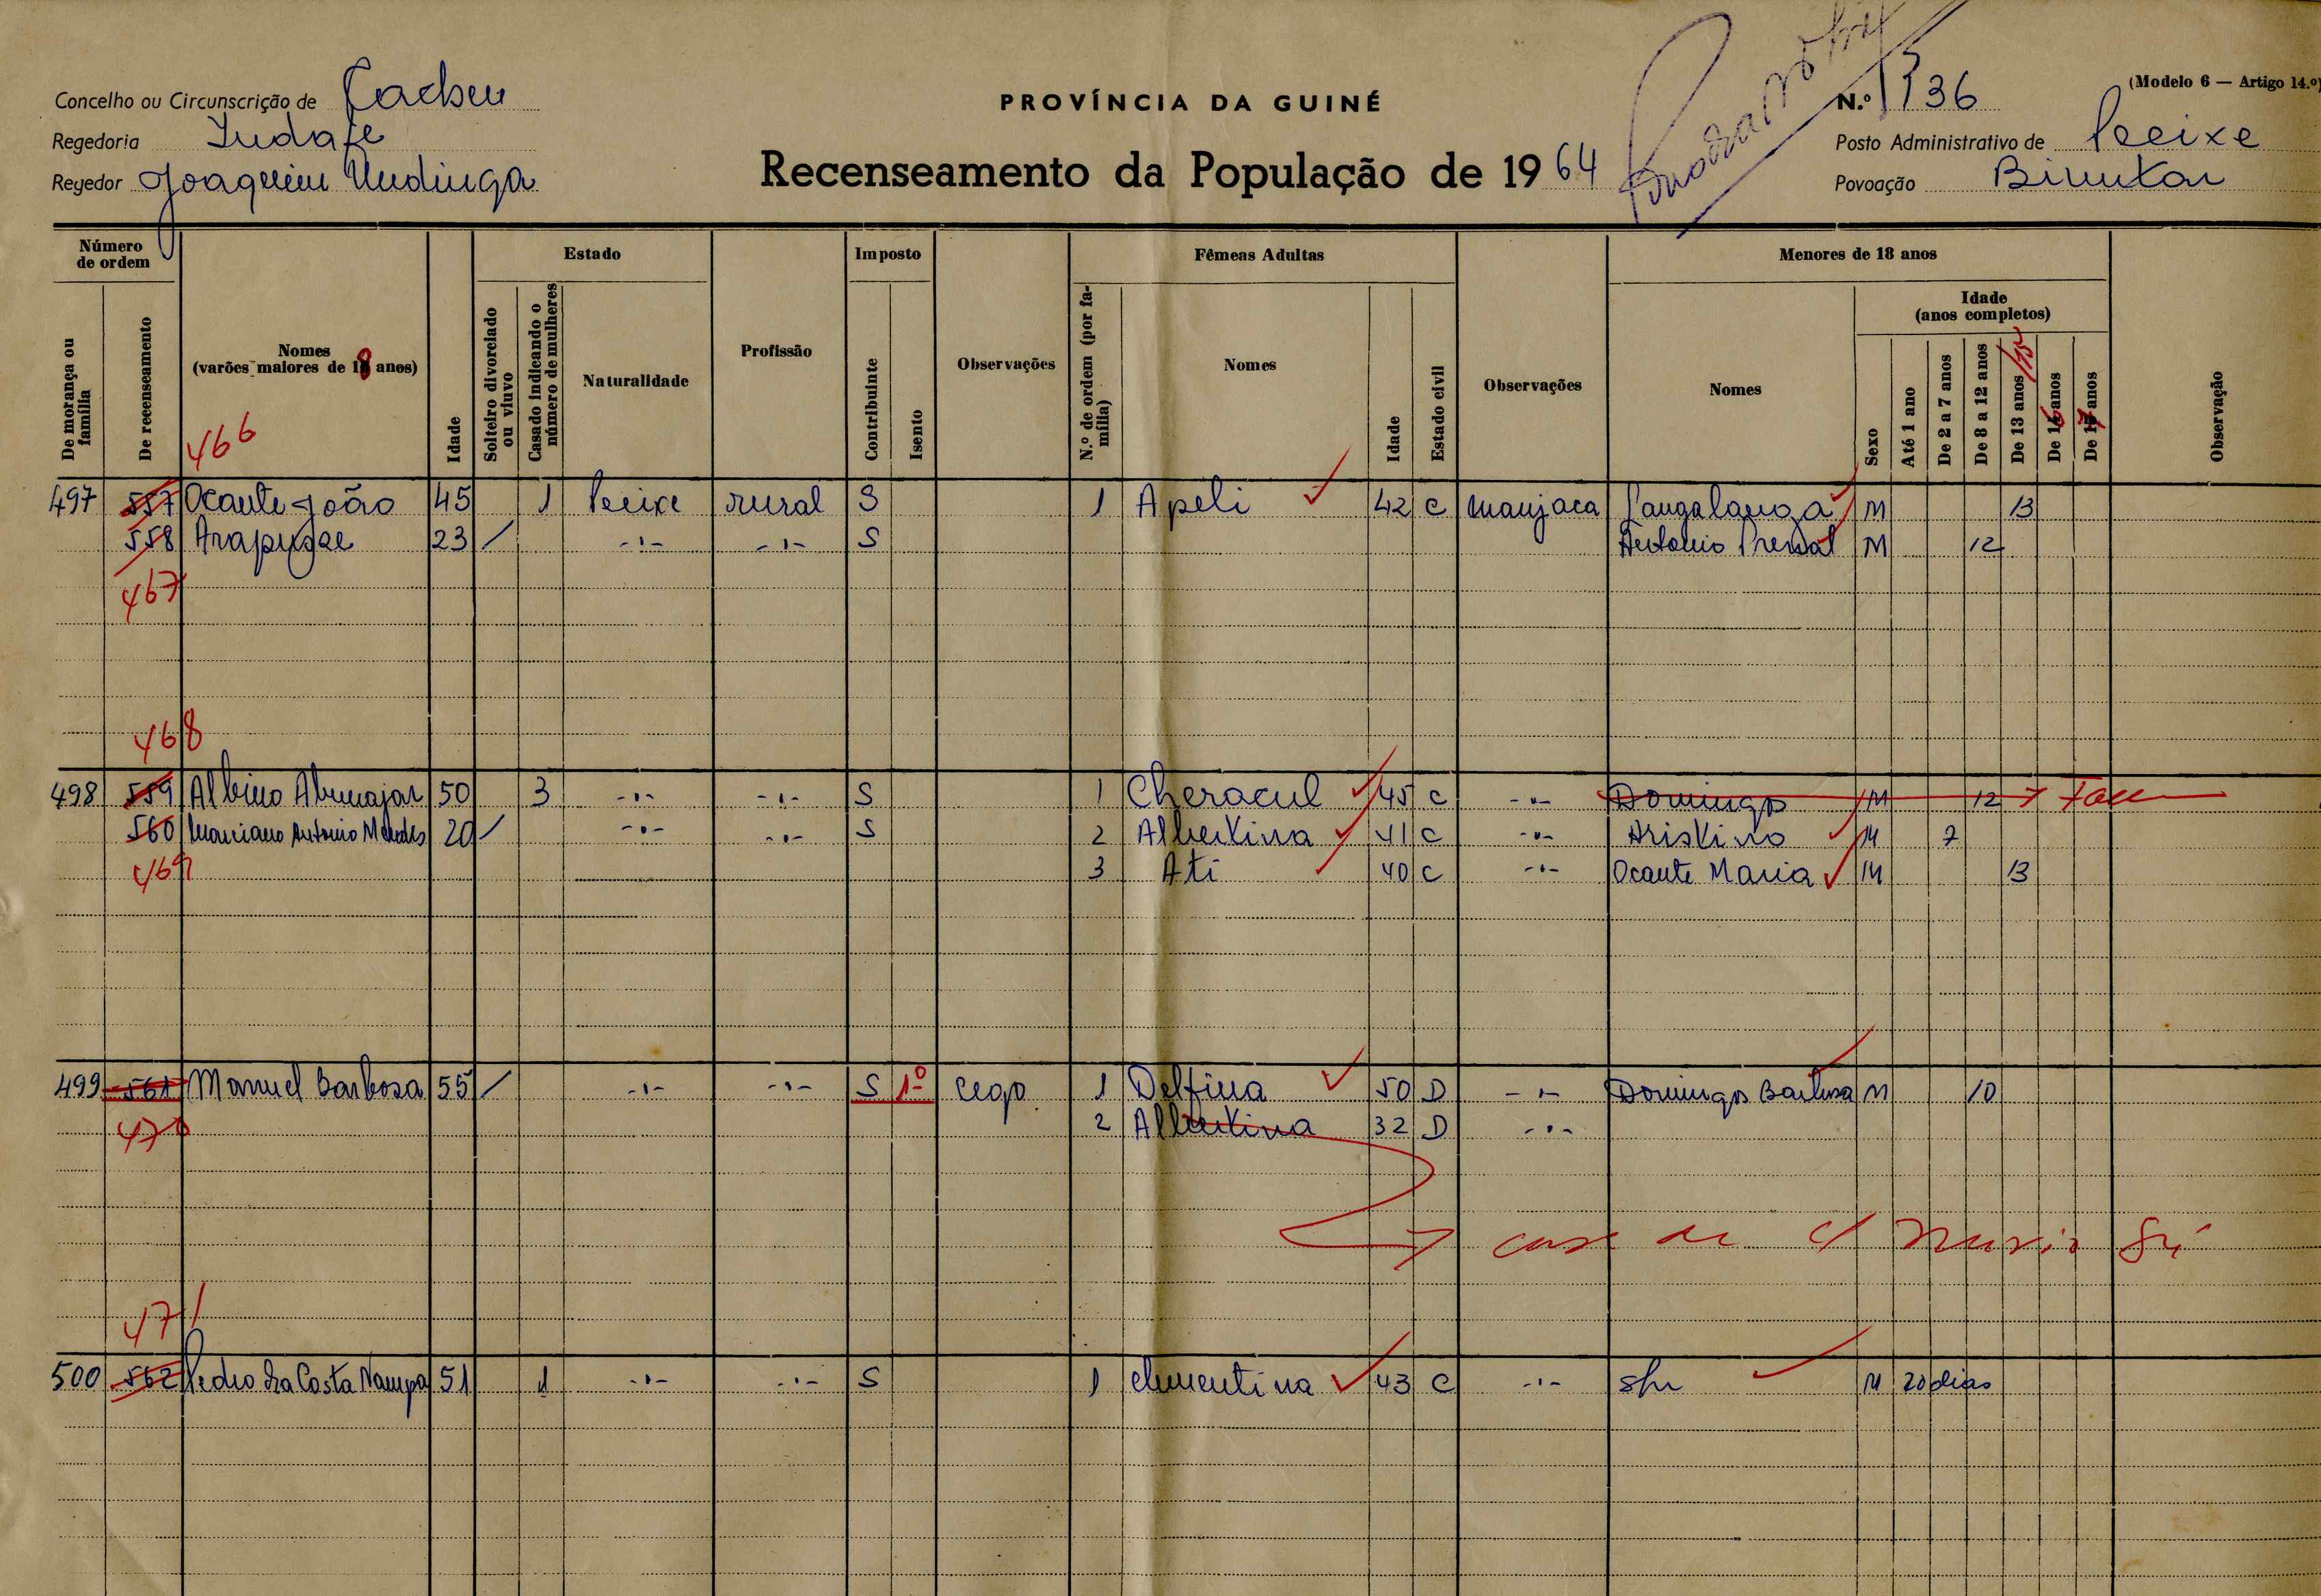 Concelho ou Circunscrição de Cacheu
Regedoria
Regedor Joaquim
PROVÍNCIA DA GUINÉ
Recenseamento da População de 1964
(Modelo 6 — Artigo 14.º)
N.º 136
Posto Administrativo de
Povoação
Número de ordem
De morança ou família
De recenseamento
Nomes (varões maiores de 18 anos)
Idade
Estado
Solteiro divorciado ou viuvo
Casado indicando o número de mulheres
Naturalidade
Profissão
Imposto
Contribuinte
Isento
Observações
Fêmeas Adultas
N.º de ordem (por família)
Nomes
Idade
Estado civil
Observações
Menores de 18 anos
Nomes
Sexo
Idade (anos completos)
Até 1 ano
De 2 a 7 anos
De 8 a 12 anos
De 13 anos /15
De 16 anos
De 17 anos
Observação
466
497 557 Ocante João 45 1 rural S 1 Apeli 42 C manjaca M 13
558 23 / -·- -·- S Antonio M 12
467
468
498 559 Albino 50 3 -·- -·- S 1 Cheracul 45 C -·- Domingos M 12
560 Marciano Antonio Mendes 20 / -·- -·- S 2 Albertina 41 C -·- Aristino M 7
469 3 Ati 40 C -·- Ocante Maria M 13
499 561 Manuel Barbosa 55 / -·- -·- S 1º cego 1 Delfina 50 D -·- Domingos Barbosa M 10
470 2 Albertina 32 D -·-
471
500 562 Pedro da Costa Nampa 51 1 -·- -·- S 1 Clementina 43 C -·- s/n M 20 dias